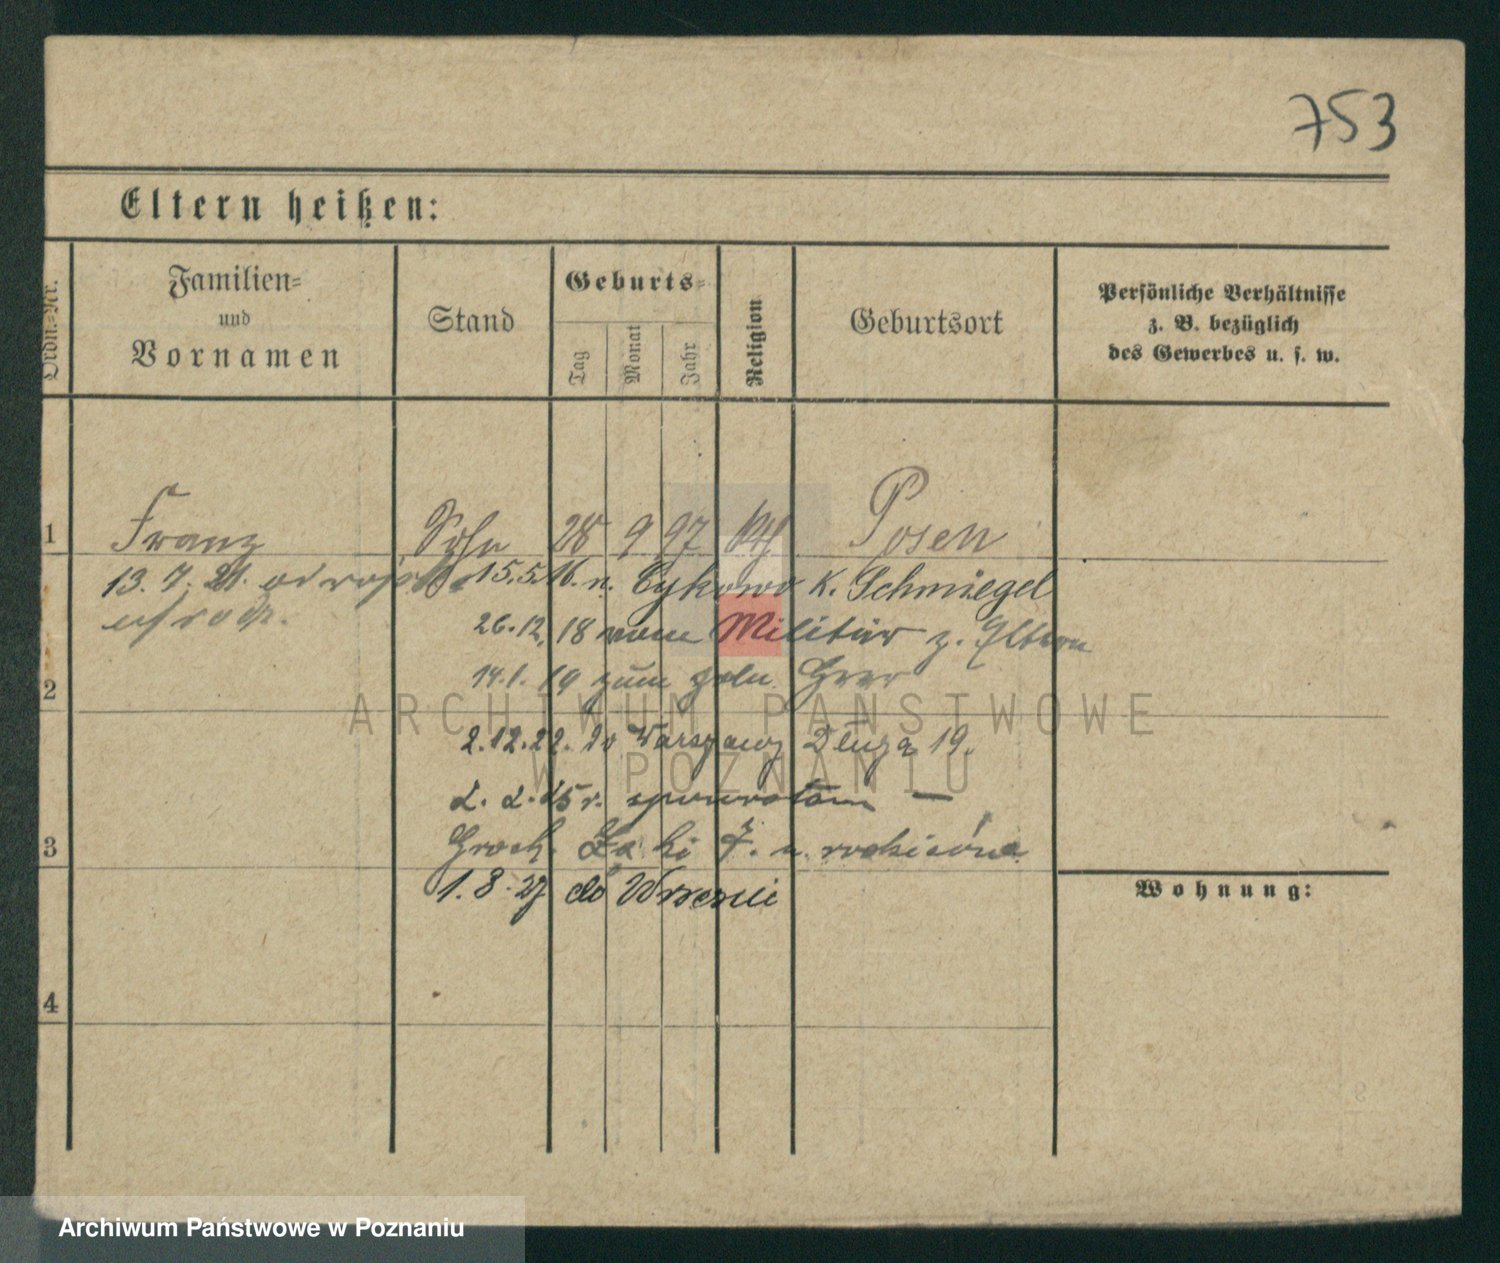 753
Eltern heißen:
Ordn.-Nr.
Familien-
und
Vornamen
Stand
Geburts-
Tag
Monat
Jahr
Religion
Geburtsort
Persönliche Verhältnisse
z. B. bezüglich
des Gewerbes u. s. w.
1 Franz Sohn 28 9 97 kth Posen
13. 7. 21. 15.5.16. n. Cykowo K. Schmiegel
26.12.18 vom Militär z. Eltern
2 14.1.19 zum poln. Heer
2.12.22. do Warszawy Długa 19.
2. 2. 25 r. z powrotem —
3 Groch. Łąki 7. u rodziców
1.8.27 do Wrześni
Wohnung:
4
ARCHIWUM PAŃSTWOWE
W POZNANIU
Archiwum Państwowe w Poznaniu